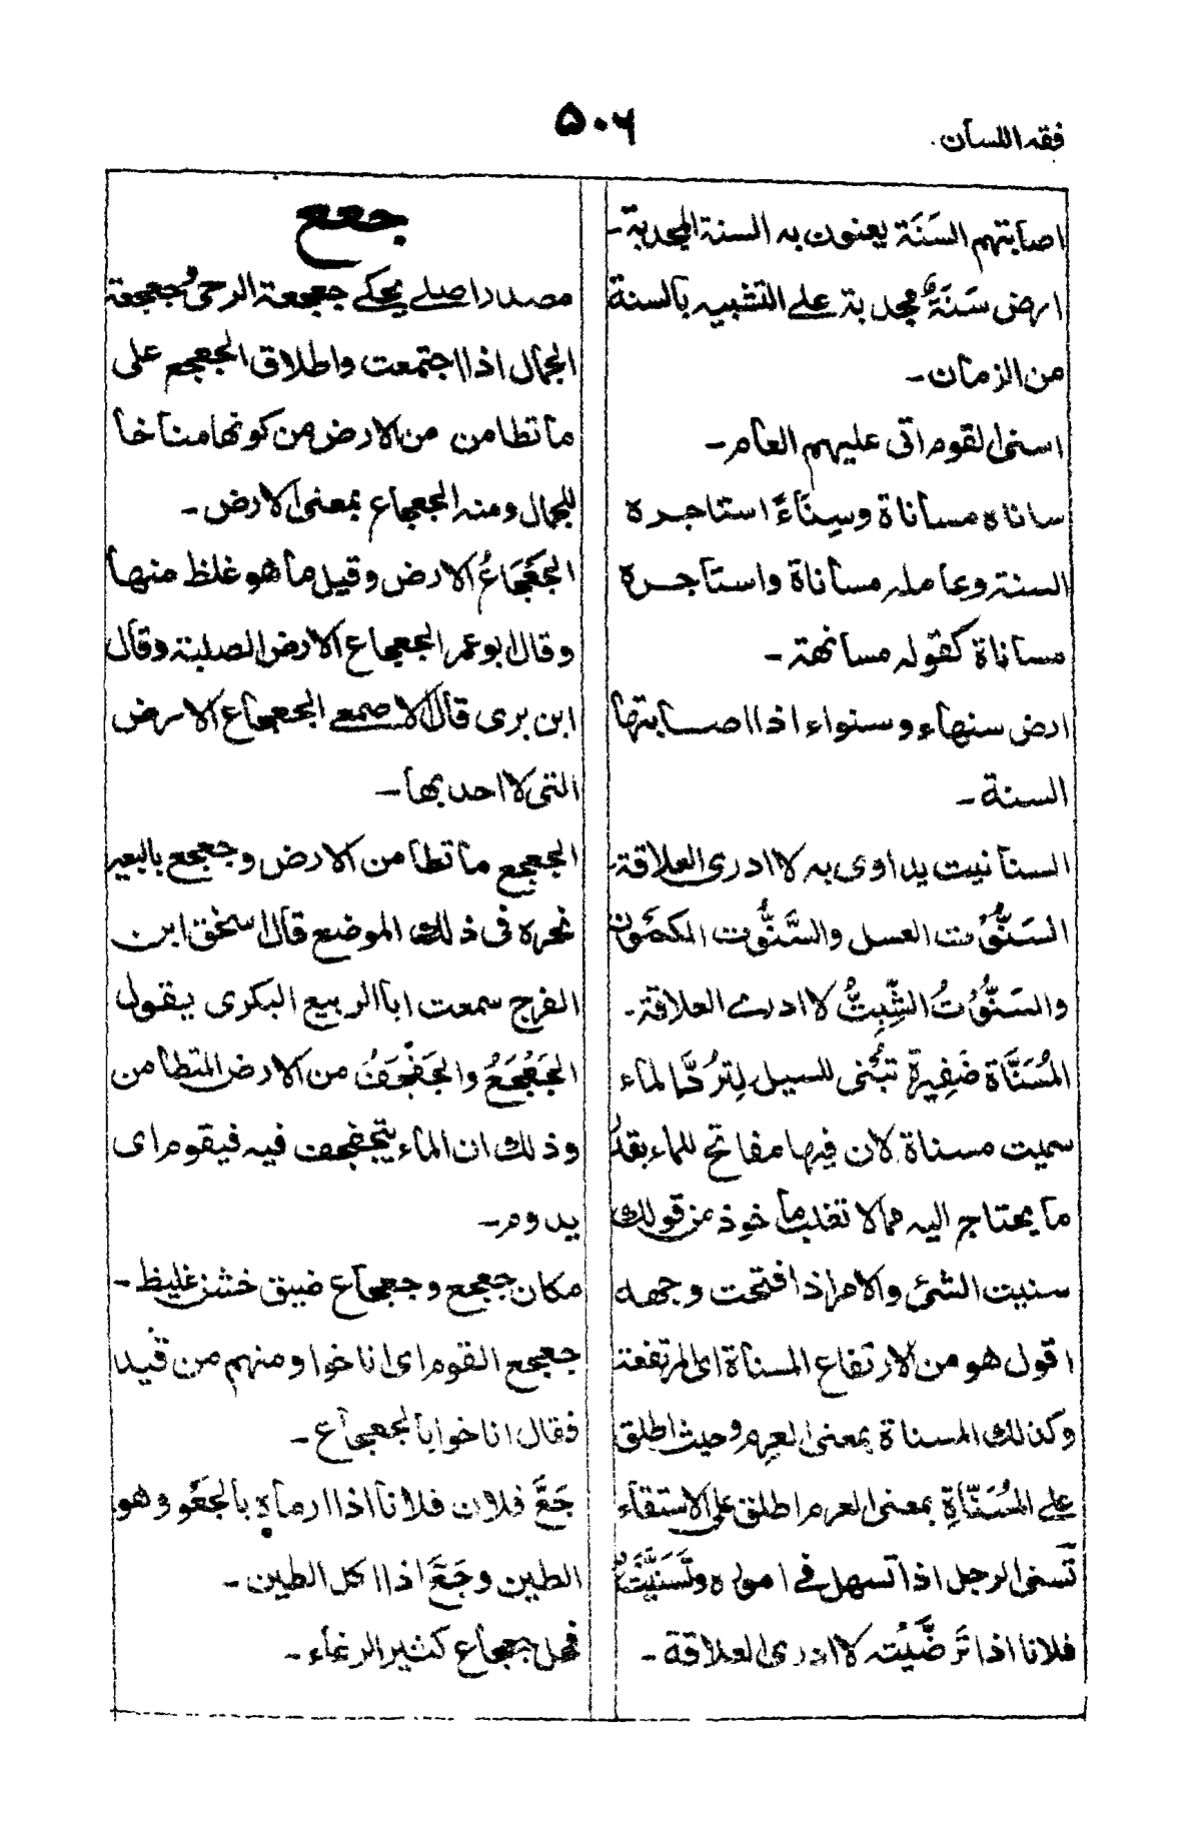 فقه اللسان.
۵۰۶
اصابتهم السَنَة يعنون به السنة المجدبة-
ارض سَنَةٌ مجدبة على التشبيه بالسنة
من الزمان-
اسنى القوم اتى عليهم العام-
ساناه مساناة وسِناءً استاجره
السنة وعامله مساناة واستاجره
مساناة كقوله مسانهة-
ارض سنهاء وسنواء اذا اصابتها
السنة-
السنانيت يداوى به لا ادرى العلاقة-
السَنُّوت العسل والسَّنُّوت الكمون
والسَنُّوتُ الشِّبِثُّ لا ادرى العلاقة-
المُسَنَّاة ضَفِيرة تُبْنى للسيل لِتَرُدَّ الماء
سميت مسناة لان فيها مفاتح للماء بقدر
ما يحتاج اليه مما لا تغلب ماخوذ من قولك
سنيت الشئ والامر اذا فتحت وجهه
اقول هو من الارتفاع المسناة اى المرتفعة
وكذلك المسناة بمعنى العرم وحيث اطلق
على المُسَنَّاةِ بمعنى العرم اطلق على الاستقاء
تَسنى الرجل اذا تسهل فى اموره وتَسَنَّيْتُ
فلانا اذا تَرَضَّيْته لا ادرى العلاقة-
جعع
مصدر اصلى يحكى جعجعة الرحى وجعجعة
الجمال اذا اجتمعت واطلاق الجعجع على
ما تطامن من الارض من كونها مناخا
للجمال ومنه الجعجاع بمعنى الارض-
الجَعْجَاعُ الارض وقيل ما هو غلظ منها
وقال ابو عمر الجعجاع الارض الصلبة وقال
ابن برى قال الاصمعى الجعجاع الارض
التى لا احد بها-
الجعجع ما تطامن من الارض وجعجع بالبعير
نحره فى ذلك الموضع قال اسحق ابن
الفرج سمعت ابا الربيع البكرى يقول
الجَعْجَعُ والجَفْجَفُ من الارض المتطامن
وذلك ان الماء يتجفجف فيه فيقوم اى
يدوم-
مكان جعجع وجعجاع ضيق خشن غليظ-
جعجع القوم اى اناخوا ومنهم من قيد
فقال اناخوا بالجعجاع-
جَعَّ فلان فلانا اذا رماه بالجَعْو وهو
الطين وجَعَّ اذا اكل الطين-
فحل جعجاع كثير الرغاء-